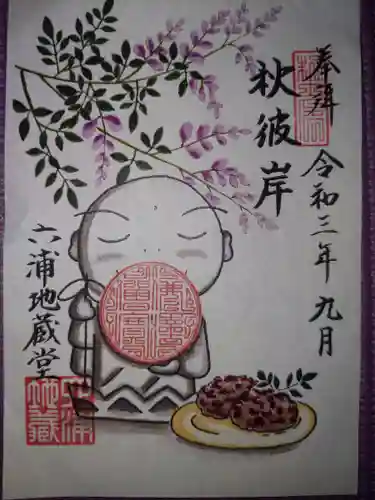 奉拝
令和三年九月
秋彼岸
六浦地蔵堂
六浦
地蔵